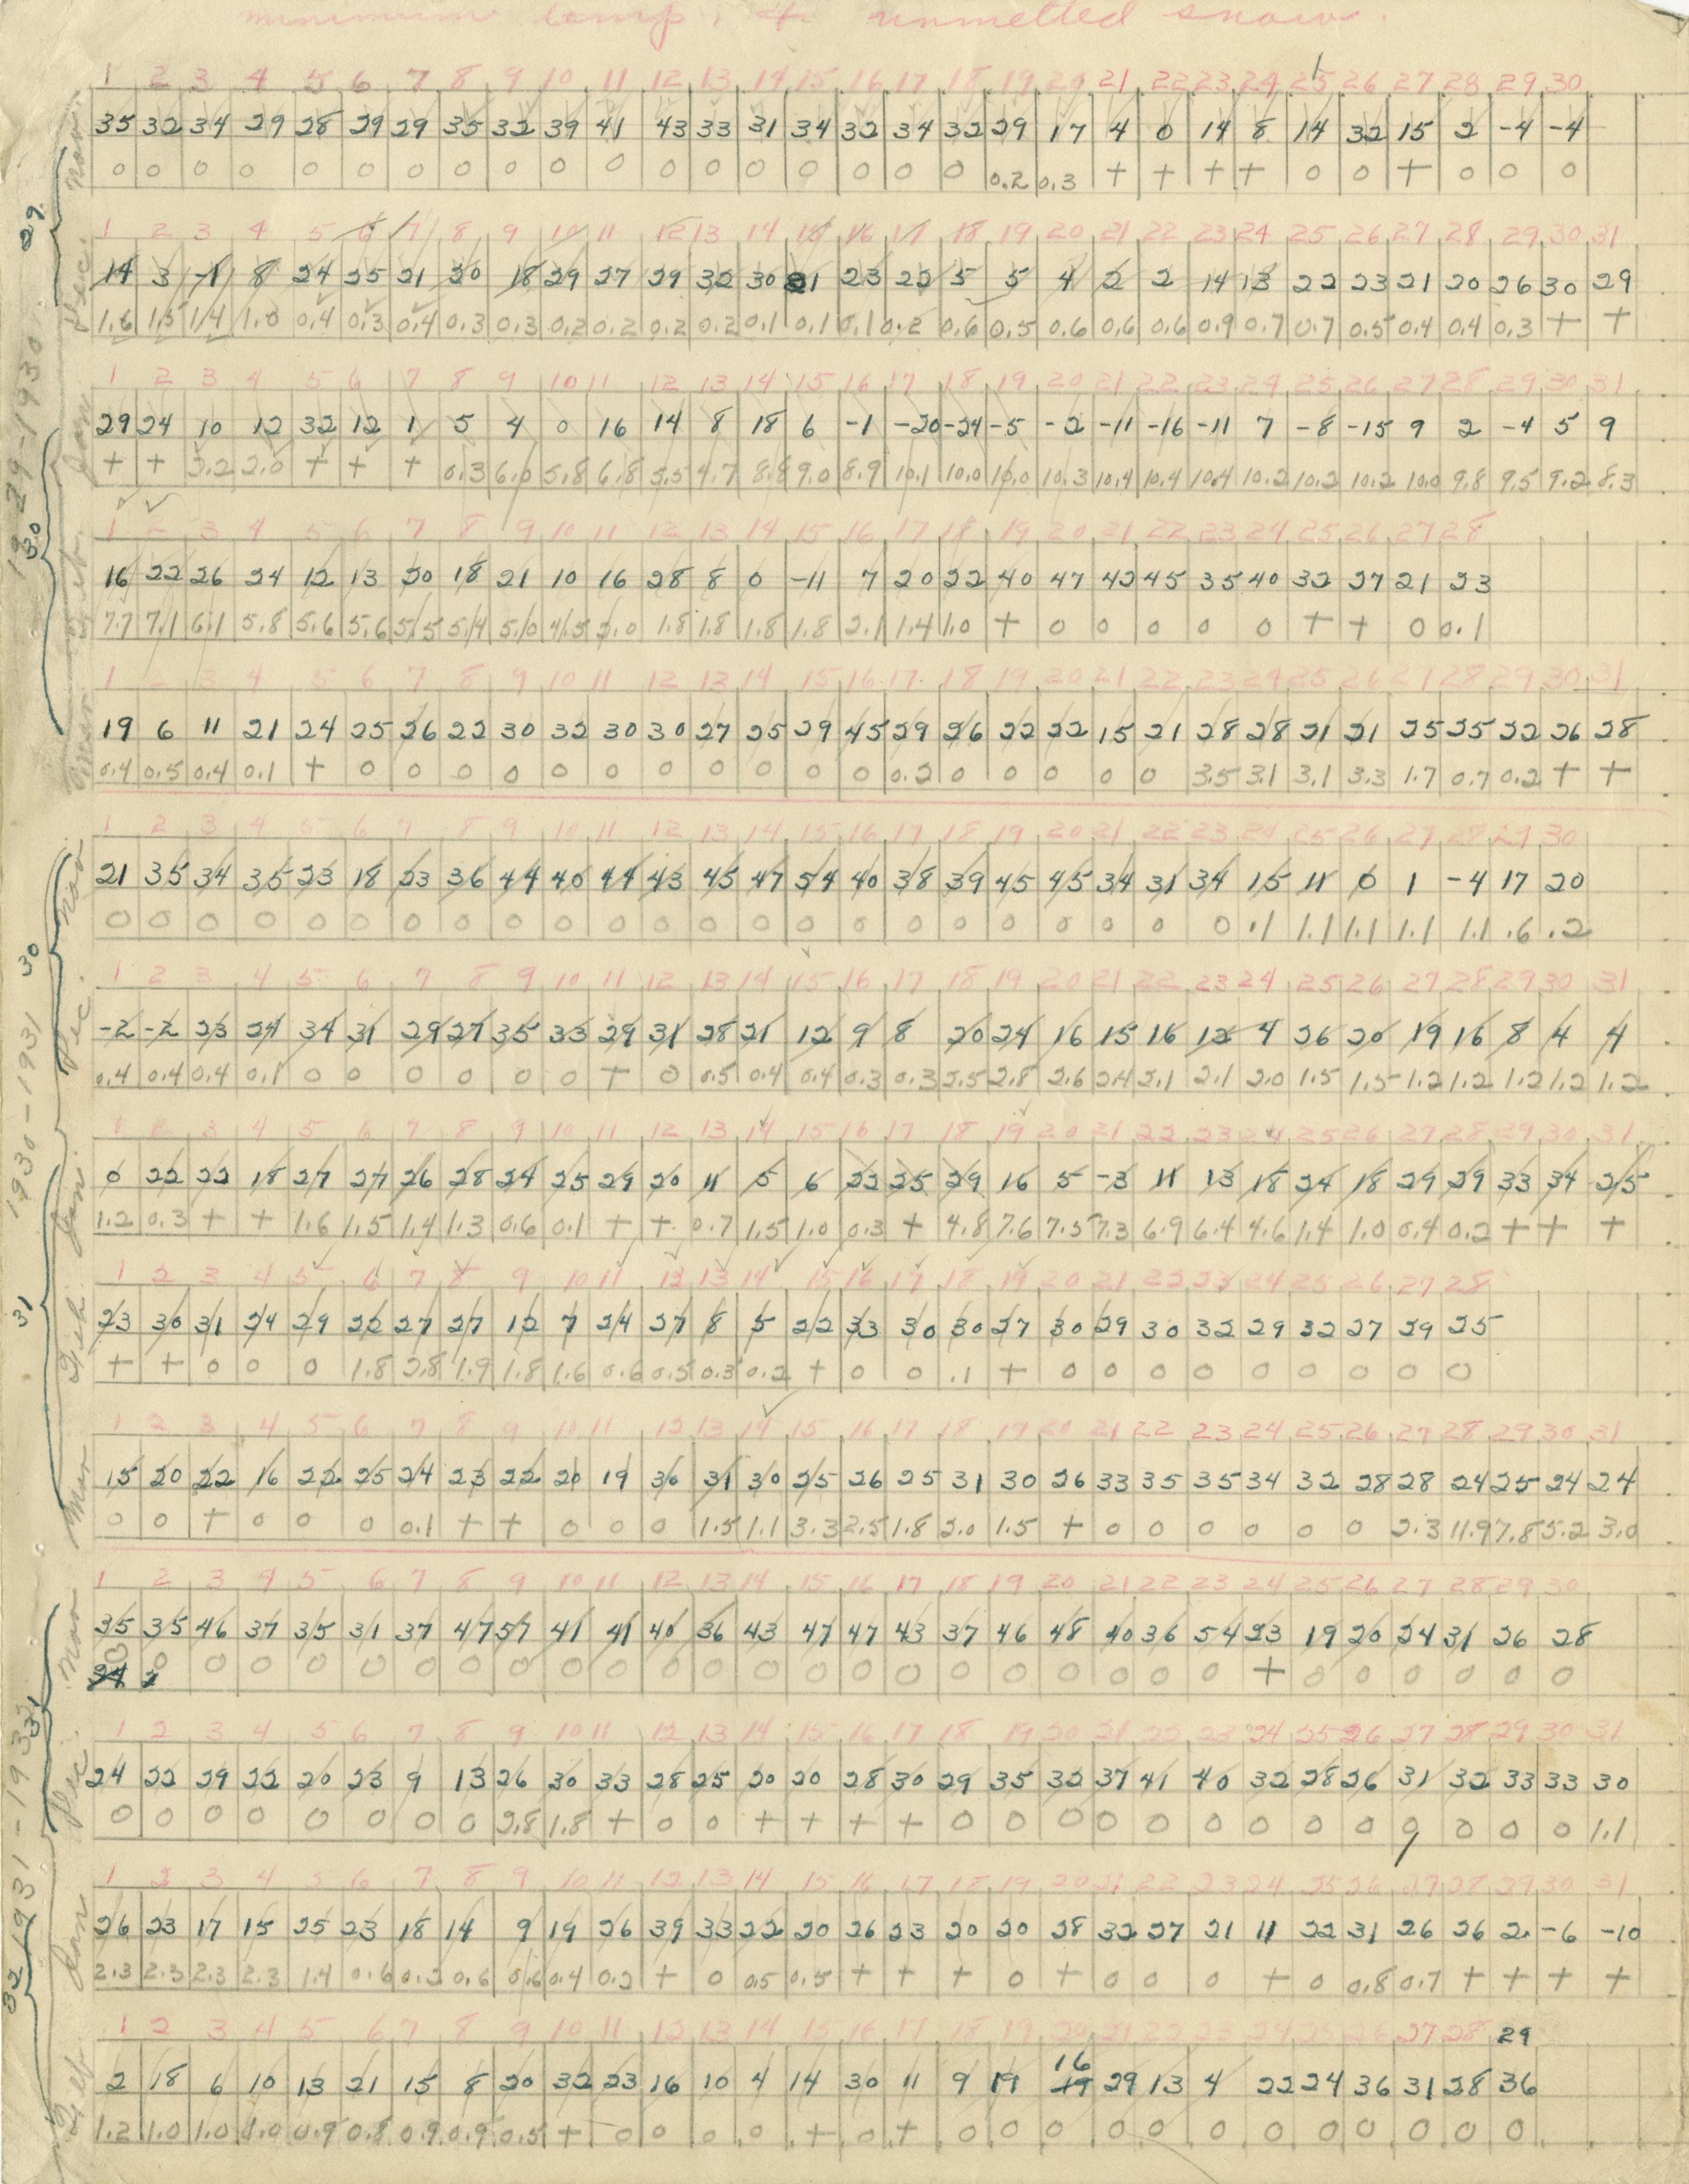 minimum temp. & unmelted snow.
1929-1930
29
Nov.
1 2 3 4 5 6 7 8 9 10 11 12 13 14 15 16 17 18 19 20 21 22 23 24 25 26 27 28 29 30
35 32 34 29 28 29 29 35 32 39 41 43 33 31 34 32 34 32 29 17 4 0 14 8 14 32 15 2 -4 -4
0 0 0 0 0 0 0 0 0 0 0 0 0 0 0 0 0 0 0.2 0.3 + + + + 0 0 + 0 0 0
Dec.
1 2 3 4 5 6 7 8 9 10 11 12 13 14 15 16 17 18 19 20 21 22 23 24 25 26 27 28 29 30 31
14 3 -1 8 24 25 21 20 18 29 27 29 32 30 21 23 22 5 5 4 2 2 14 13 22 23 21 20 26 30 29
1.6 1.5 1.4 1.0 0.4 0.3 0.4 0.3 0.3 0.2 0.2 0.2 0.2 0.1 0.1 0.1 0.2 0.6 0.5 0.6 0.6 0.6 0.9 0.7 0.7 0.5 0.4 0.4 0.3 + +
30
Jan.
1 2 3 4 5 6 7 8 9 10 11 12 13 14 15 16 17 18 19 20 21 22 23 24 25 26 27 28 29 30 31
29 24 10 12 32 12 1 5 4 0 16 14 8 18 6 -1 -20 -24 -5 -2 -11 -16 -11 7 -8 -15 9 2 -4 5 9
+ + 2.2 2.0 + + + 0.3 6.0 5.8 6.8 5.5 4.7 8.8 9.0 8.9 10.1 10.0 10.0 10.3 10.4 10.4 10.4 10.2 10.2 10.2 10.0 9.8 9.5 9.2 8.3
Feb.
1 2 3 4 5 6 7 8 9 10 11 12 13 14 15 16 17 18 19 20 21 22 23 24 25 26 27 28
16 22 26 24 12 13 20 18 21 10 16 28 8 0 -11 7 20 22 40 47 42 45 35 40 32 27 21 23
7.7 7.1 6.1 5.8 5.6 5.6 5.5 5.4 5.0 4.5 2.0 1.8 1.8 1.8 1.8 2.1 1.4 1.0 + 0 0 0 0 0 + + 0 0.1
Mar.
1 2 3 4 5 6 7 8 9 10 11 12 13 14 15 16 17 18 19 20 21 22 23 24 25 26 27 28 29 30 31
19 6 11 21 24 25 26 22 30 32 30 30 27 25 29 45 29 26 22 22 15 21 28 28 21 21 25 25 22 26 28
0.4 0.5 0.4 0.1 + 0 0 0 0 0 0 0 0 0 0 0 0.2 0 0 0 0 0 3.5 3.1 3.1 3.3 1.7 0.7 0.2 + +
1930-1931
30
Nov.
1 2 3 4 5 6 7 8 9 10 11 12 13 14 15 16 17 18 19 20 21 22 23 24 25 26 27 28 29 30
21 35 34 35 23 18 23 36 44 40 44 43 45 47 54 40 38 39 45 45 34 31 34 15 11 0 1 -4 17 20
0 0 0 0 0 0 0 0 0 0 0 0 0 0 0 0 0 0 0 0 0 0 0 .1 1.1 1.1 1.1 1.1 .6 .2
Dec.
1 2 3 4 5 6 7 8 9 10 11 12 13 14 15 16 17 18 19 20 21 22 23 24 25 26 27 28 29 30 31
-2 -2 23 24 34 31 29 27 35 33 29 31 28 21 12 9 8 20 24 16 15 16 12 4 26 20 19 16 8 4 4
0.4 0.4 0.4 0.1 0 0 0 0 0 0 + 0 0.5 0.4 0.4 0.3 0.3 2.5 2.8 2.6 2.4 2.1 2.1 2.0 1.5 1.5 1.2 1.2 1.2 1.2 1.2
31
Jan.
1 2 3 4 5 6 7 8 9 10 11 12 13 14 15 16 17 18 19 20 21 22 23 24 25 26 27 28 29 30 31
0 22 22 18 27 27 26 28 24 25 29 20 11 5 6 22 25 29 16 5 -3 11 13 18 24 18 29 29 33 34 25
1.2 0.3 + + 1.6 1.5 1.4 1.3 0.6 0.1 + + 0.7 1.5 1.0 0.3 + 4.8 7.6 7.5 7.3 6.9 6.4 4.6 1.4 1.0 0.4 0.2 + + +
Feb.
1 2 3 4 5 6 7 8 9 10 11 12 13 14 15 16 17 18 19 20 21 22 23 24 25 26 27 28
23 30 31 24 29 22 27 27 12 7 24 27 8 5 22 33 30 30 27 30 29 30 32 29 32 27 29 25
+ + 0 0 0 1.8 2.8 1.9 1.8 1.6 0.6 0.5 0.3 0.2 + 0 0 .1 + 0 0 0 0 0 0 0 0 0
Mar
1 2 3 4 5 6 7 8 9 10 11 12 13 14 15 16 17 18 19 20 21 22 23 24 25 26 27 28 29 30 31
15 20 22 16 22 25 24 23 22 20 19 30 31 30 25 26 25 31 30 26 33 35 35 34 32 28 28 24 25 24 24
0 0 + 0 0 0 0.1 + + 0 0 0 1.5 1.1 3.3 2.5 1.8 2.0 1.5 + 0 0 0 0 0 0 2.3 11.9 7.8 5.2 3.0
1931-1932
31
Nov
1 2 3 4 5 6 7 8 9 10 11 12 13 14 15 16 17 18 19 20 21 22 23 24 25 26 27 28 29 30
35 35 46 37 35 31 37 47 57 41 41 40 36 43 47 47 43 37 46 48 40 36 54 23 19 20 24 31 26 28
0 0 0 0 0 0 0 0 0 0 0 0 0 0 0 0 0 0 0 0 0 0 0 + 0 0 0 0 0 0
Dec.
1 2 3 4 5 6 7 8 9 10 11 12 13 14 15 16 17 18 19 20 21 22 23 24 25 26 27 28 29 30 31
24 22 29 22 20 23 9 13 26 30 33 28 25 20 20 28 30 29 35 32 37 41 40 32 28 26 31 32 33 33 30
0 0 0 0 0 0 0 0 2.8 1.8 + 0 0 + + + + 0 0 0 0 0 0 0 0 0 0 0 0 0 1.1
32
Jan
1 2 3 4 5 6 7 8 9 10 11 12 13 14 15 16 17 18 19 20 21 22 23 24 25 26 27 28 29 30 31
26 23 17 15 25 23 18 14 9 19 26 39 33 22 20 26 23 20 20 28 32 27 21 11 22 31 26 26 2 -6 -10
2.3 2.3 2.3 2.3 1.4 0.6 0.2 0.6 0.6 0.4 0.2 + 0 0.5 0.5 + + + 0 + 0 0 0 + 0 0.8 0.7 + + + +
Feb
1 2 3 4 5 6 7 8 9 10 11 12 13 14 15 16 17 18 19 20 21 22 23 24 25 26 27 28 29
2 18 6 10 13 21 15 8 20 32 23 16 10 4 14 30 11 9 19 16 29 13 4 22 24 36 31 28 36
1.2 1.0 1.0 1.0 0.9 0.8 0.9 0.9 0.5 + 0 0 0 0 + 0 + 0 0 0 0 0 0 0 0 0 0 0 0